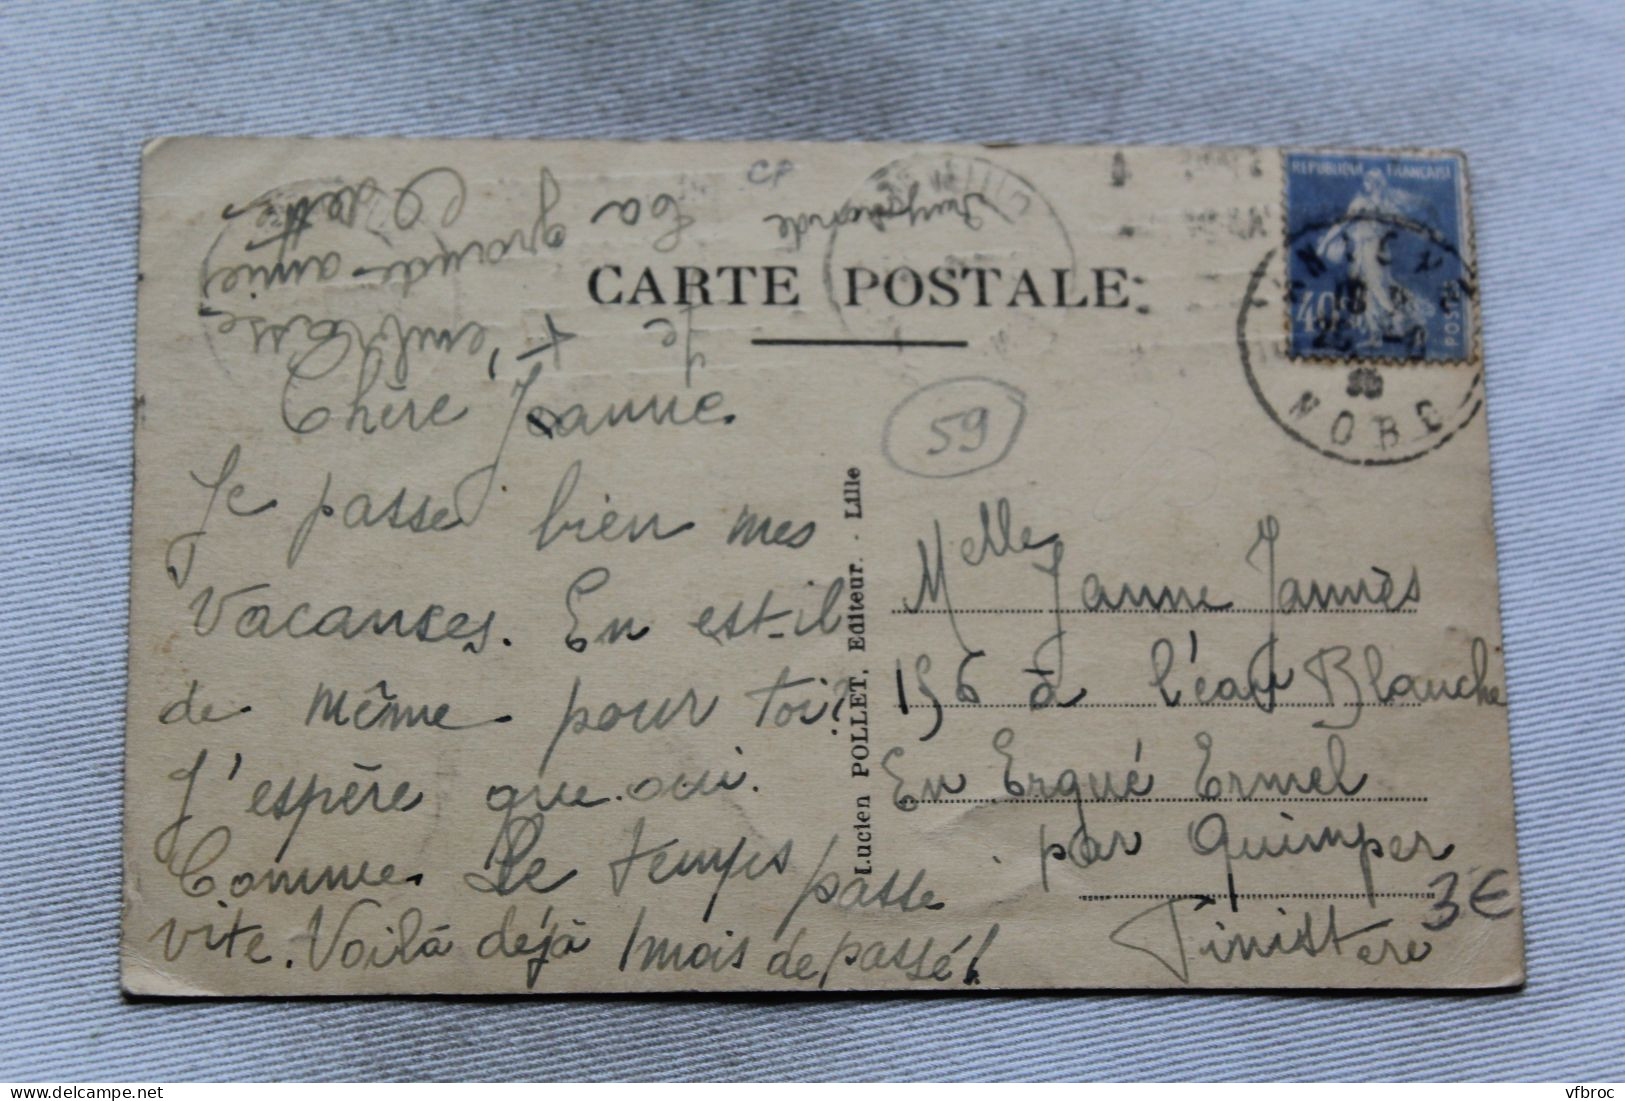 CP
CARTE POSTALE
Chère Jeanne.
Je passe bien mes
Vacances. En est-il
de même pour toi?
J'espère que oui.
Comme Le temps passe
vite. Voilà déjà 1 mois de passé!
Je t'embrasse,
Ta grande amie,
Odette
Raymonde
Lucien POLLET, Editeur. - Lille
59
REPUBLIQUE FRANÇAISE
40c
POSTES
NORD
Melle Janne Jannès
156 à l'eau Blanche
En Ergué Ermel
par Quimper
Finistère
3€
vfbroc